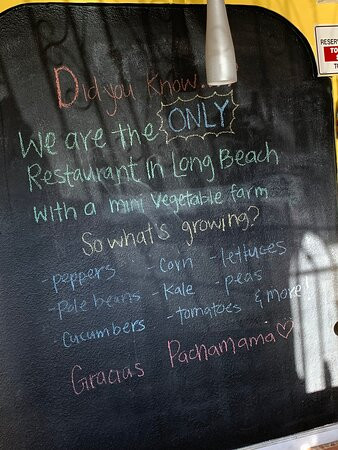 Did you know...
We are the ONLY
Restaurant in Long Beach
with a mini vegetable farm
So what's growing?
- peppers - corn - lettuces
- Pole beans - Kale - peas
- cucumbers - tomatoes & more!
Gracias Pachamama ♡
RESERVE